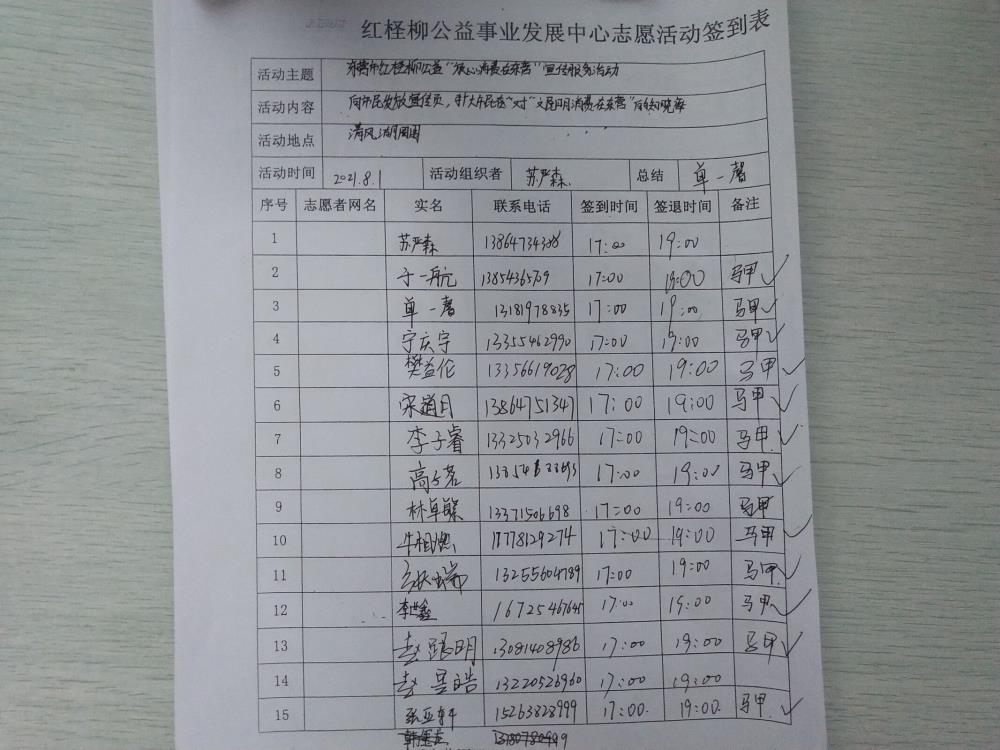 红柽柳公益事业发展中心志愿活动签到表
活动主题 东营市红柽柳公益"放心消费在东营"宣传服务活动
活动内容 向市民发放宣传页，扩大市民 对"文明消费在东营" 知晓率
活动地点 清风湖周围
活动时间 2021.8.1 活动组织者 苏严森 总结 单一馨
序号 志愿者网名 实名 联系电话 签到时间 签退时间 备注
1 苏严森 17:00 19:00
2 于一航 17:00 19:00 马甲 ✓
3 单一馨 13181978835 17:00 19:00 马甲 ✓
4 宁庆宇 13355462990 17:00 19:00 马甲 ✓
5 樊益伦 13356619028 17:00 19:00 马甲 ✓
6 宋道月 13864751347 17:00 19:00 马甲 ✓
7 李子睿 13325032966 17:00 19:00 马甲 ✓
8 高子茗 17:00 19:00 马甲 ✓
9 林卓繄 13371506698 17:00 19:00 马甲
10 牛相懿 17778129274 17:00 19:00 马甲 ✓
11 13255604789 17:00 19:00 马甲 ✓
12 李世鑫 16725467645 17:00 19:00 马甲 ✓
13 赵 明 13081408986 17:00 19:00 马甲 ✓
14 赵昱皓 13220526960 17:00 19:00
15 张亚轩 15263828999 17:00 19:00 马甲 ✓